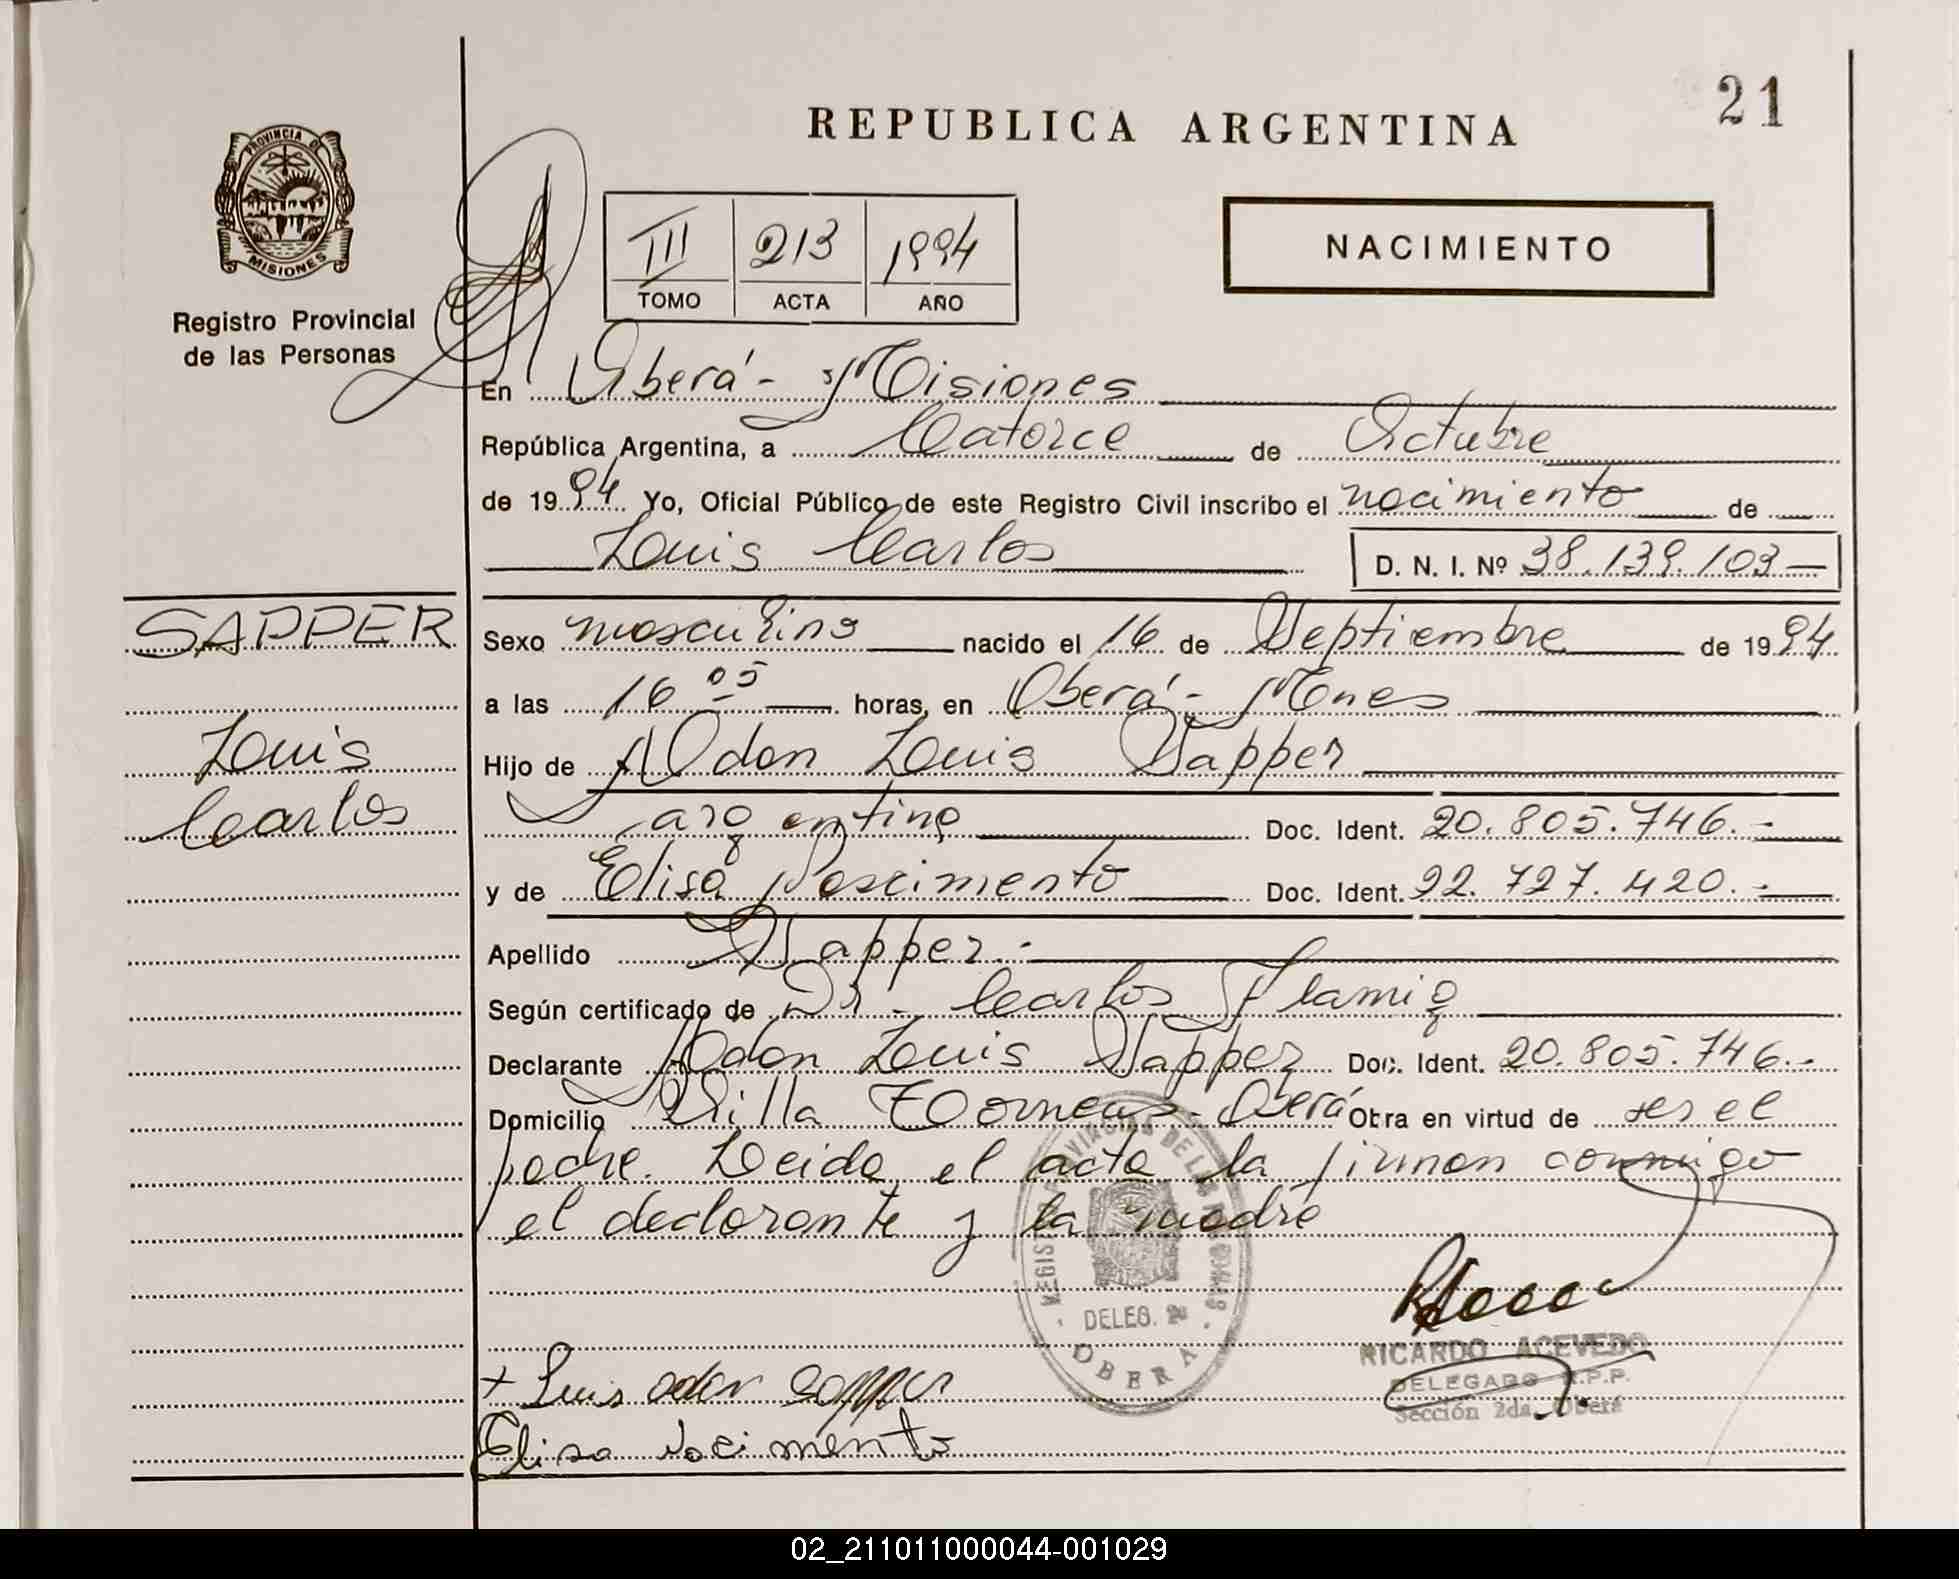 21
REPUBLICA ARGENTINA
PROVINCIA DE
MISIONES
Registro Provincial
de las Personas
III 213 1994
TOMO ACTA AÑO
NACIMIENTO
En Oberá - Misiones
República Argentina, a Catorce de Octubre
de 1994 Yo, Oficial Público de este Registro Civil inscribo el nacimiento de
Luis Carlos D. N. I. Nº 38.139.103
SAPPER
Luis
Carlos
Sexo masculino nacido el 16 de Septiembre de 1994
a las 16 05 horas, en Oberá - Mnes
Hijo de Odon Luis Sapper
argentino Doc. Ident. 20.805.746.-
y de Elisa Nascimento Doc. Ident. 92.727.420.-
Apellido Sapper.-
Según certificado de Dr. Carlos Flamig
Declarante Odon Luis Sapper Doc. Ident. 20.805.746.-
Domicilio Villa - Oberá Obra en virtud de ser el
padre. Leida el acta la firman conmigo
el declarante y la madre
REGISTRO PROVINCIAL DE LAS PERSONAS
DELEG. 2ª
OBERA
RICARDO ACEVEDO
DELEGADO R.P.P.
Sección 2da. Oberá
+ Luis odon sapper
Elisa nocimento
02_211011000044-001029